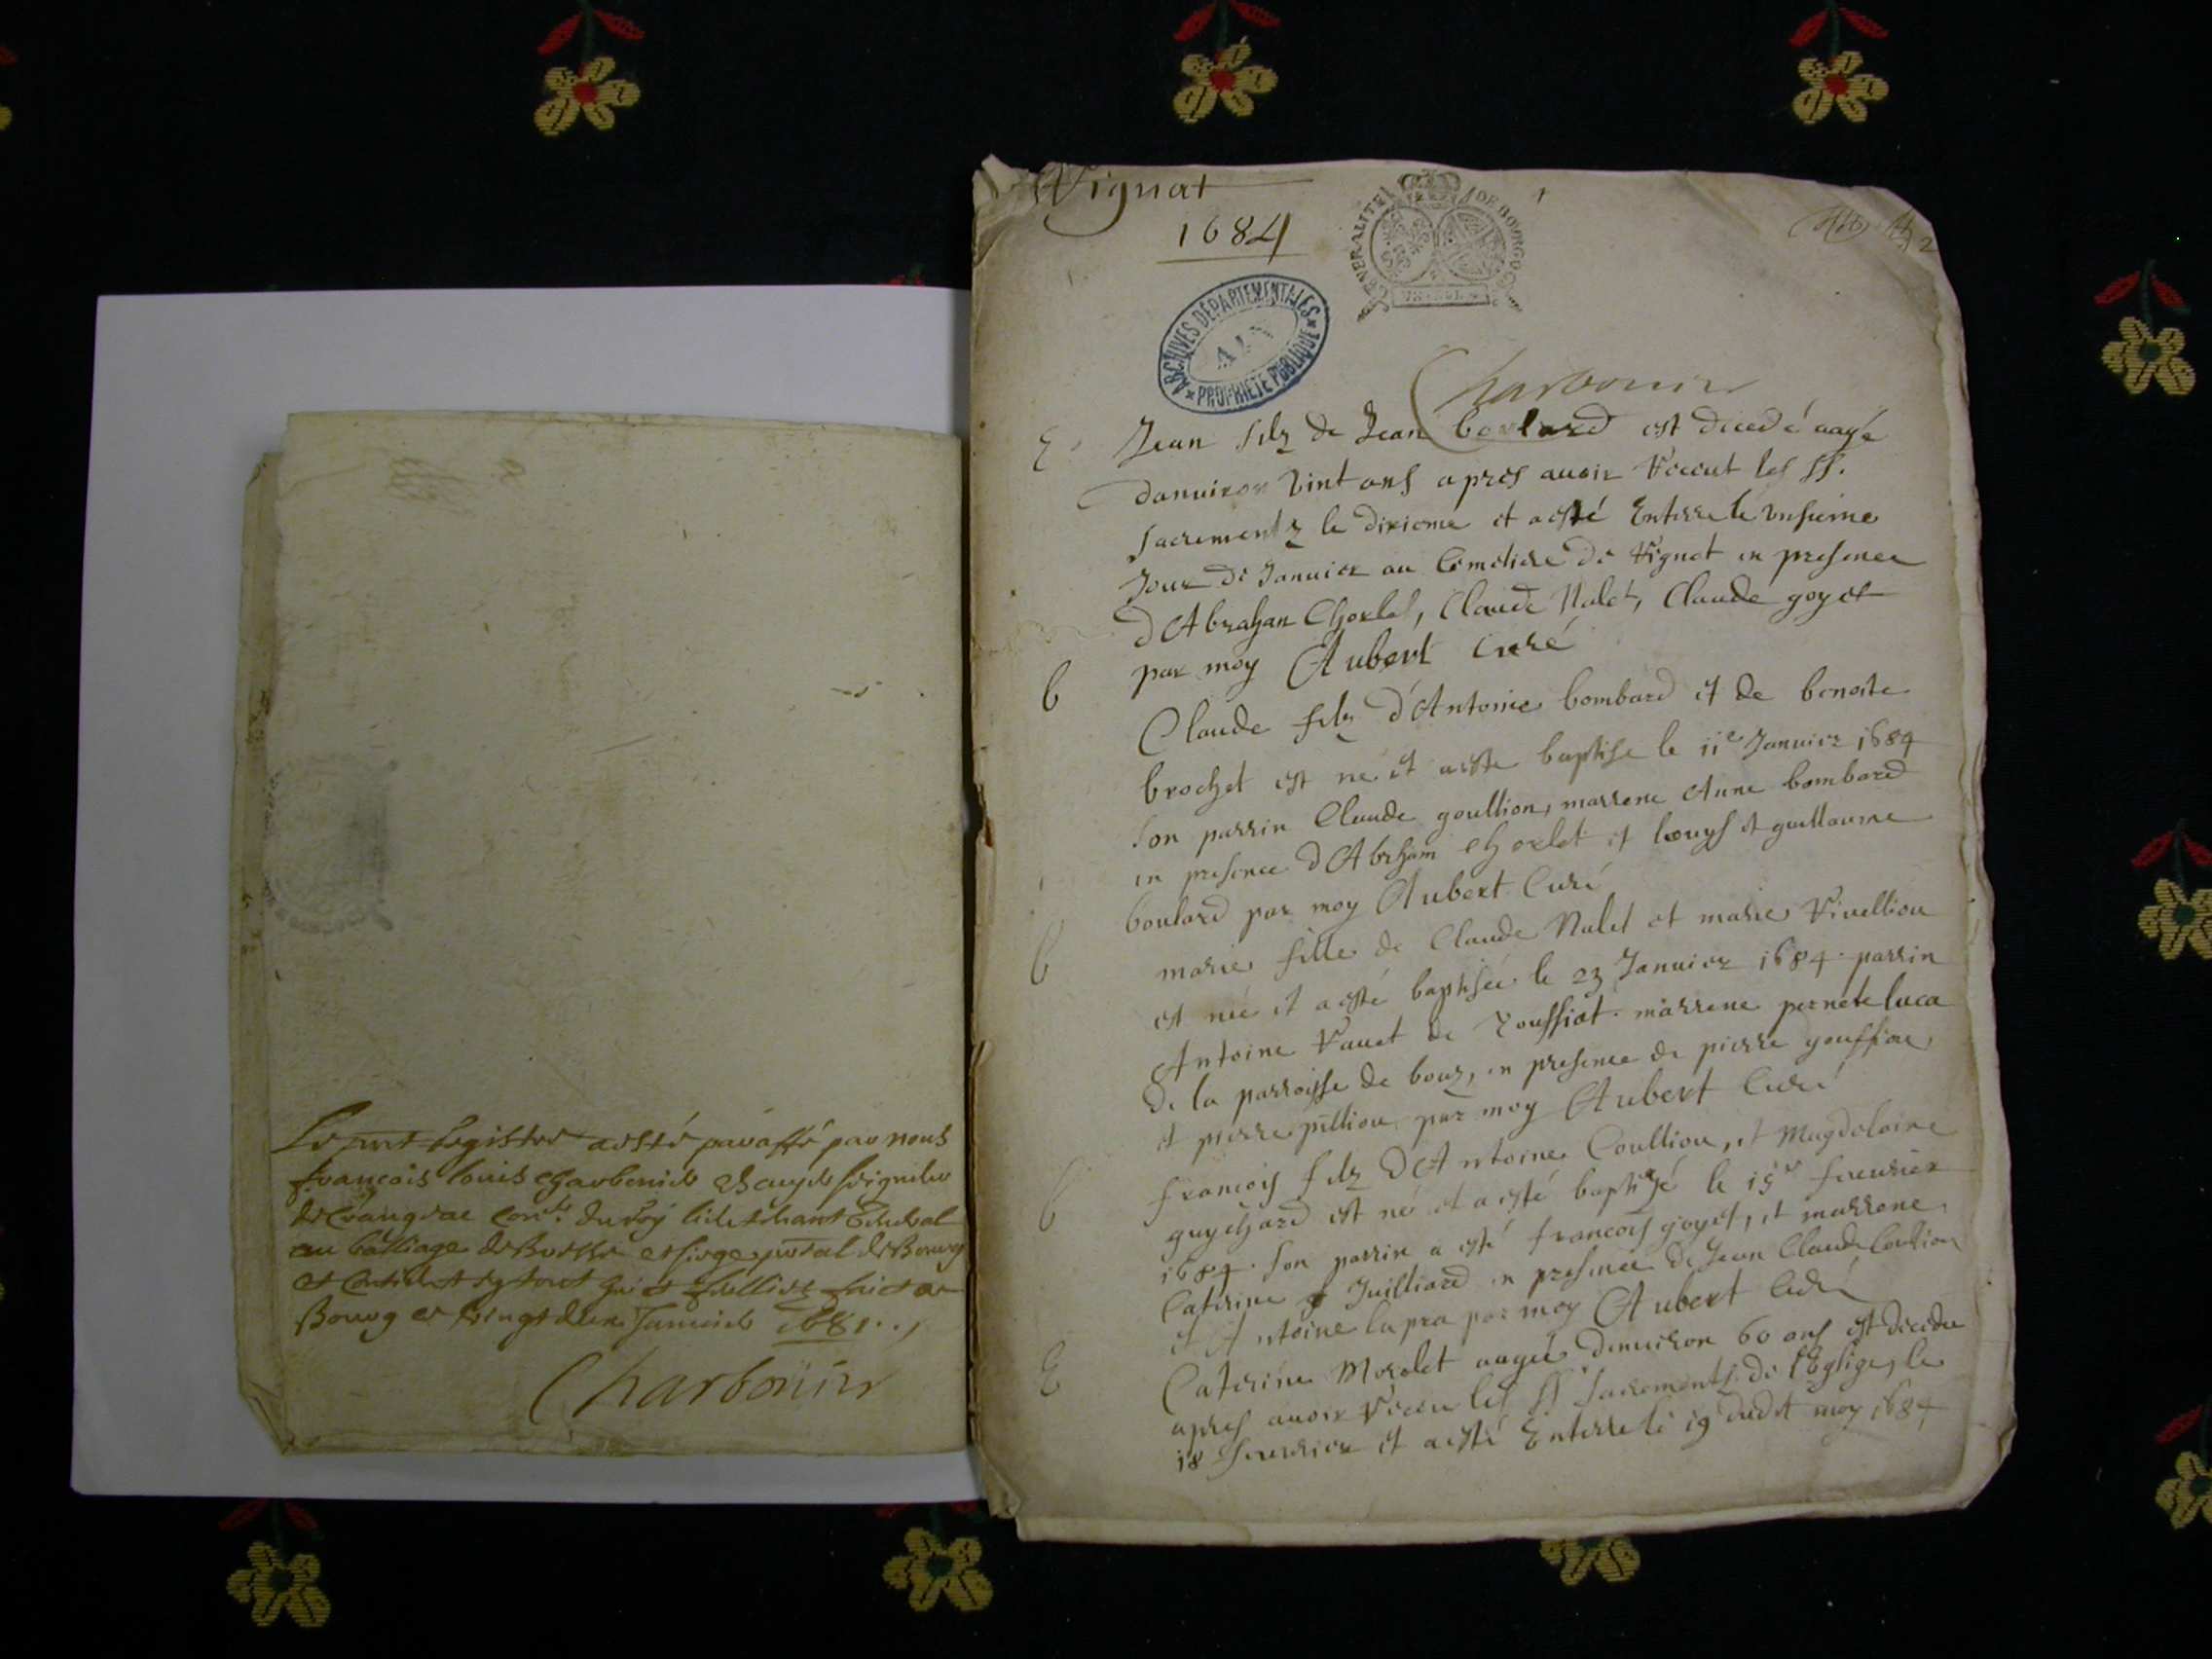 Le pnt Registre a esté paraffé par nous
françois louis charbonier Escuyer seigneur
de Crangeac Con.er du roy lieutenant general
au balliage de Bresse et siege pntal de Bourg
et contient huict feulliets faict a
Bourg ce vingt deux Janvier 1681
Charbonier
Vignat
1684
GENERALITE DE BOURGOGNE
ARCHIVES DÉPARTEMENTALES
AIN
PROPRIÉTÉ PUBLIQUE
Charbonier
E Jean filz de Jean boulard est decedé aagé
danuiron vint ans apres auoir Receut les SS.
sacrementz le dixieme et a esté Enterre le vnsieme
Jour de Januier au Cimetiere de Vignat en presence
d'Abrahan Chorlet, Claude Nalet, Claude goyet
par moy Aubert Curé
b Claude filz d'Antoine bombard et de benoite
brochet est ne et a este baptise le 11e Januier 1684
son parrin Claude goullion, marrene Anne bombard
en presence d'Abrham chorlet et louys et guillaume
boulard par moy Aubert Curé
b marie fille de Claude Nalet et marie Rivellion
est née et a esté baptisée le 23 Januier 1684. parrin
Antoine Vauet de Roussiat. marrene pernete luca
de la parroisse de bour, en presence de pierre
et pierre pillion par moy Aubert Curé
b francois filz d'Antoine Coullion, et Magdeleine
guychard est né et a esté baptizé le 15e feurier
1684. son parrin a esté francois goyet, et marrene
Caterine Juilliard en presence de Jean Claude Coullion
et Antoine lapra par moy Aubert Curé
E Caterine Morelet aagée denuiron 60 ans est decedee
apres auoir Receu les SS sacrements de l'Eglise, le
18 feurier et a esté Enterre le 19 dudit moy 1684